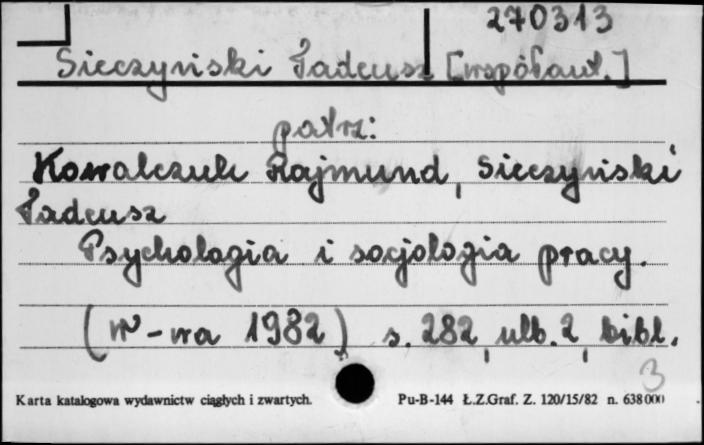 270313
Sieczyński Tadeusz [współaut.]
patrz:
Kowalczuk Rajmund, Sieczyński
Tadeusz
Psychologia i socjologia pracy.
(W-wa 1982) s. 282, ulb. 2, bibl.
3
Karta katalogowa wydawnictw ciągłych i zwartych. Pu-B-144 Ł.Z.Graf. Z. 120/15/82 n. 638000